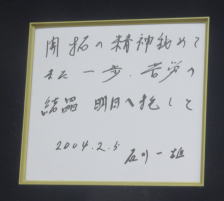 開拓の精神秘めて
また一歩、苦労の
結晶 明日へ托して
2004.2.5 石川一雄